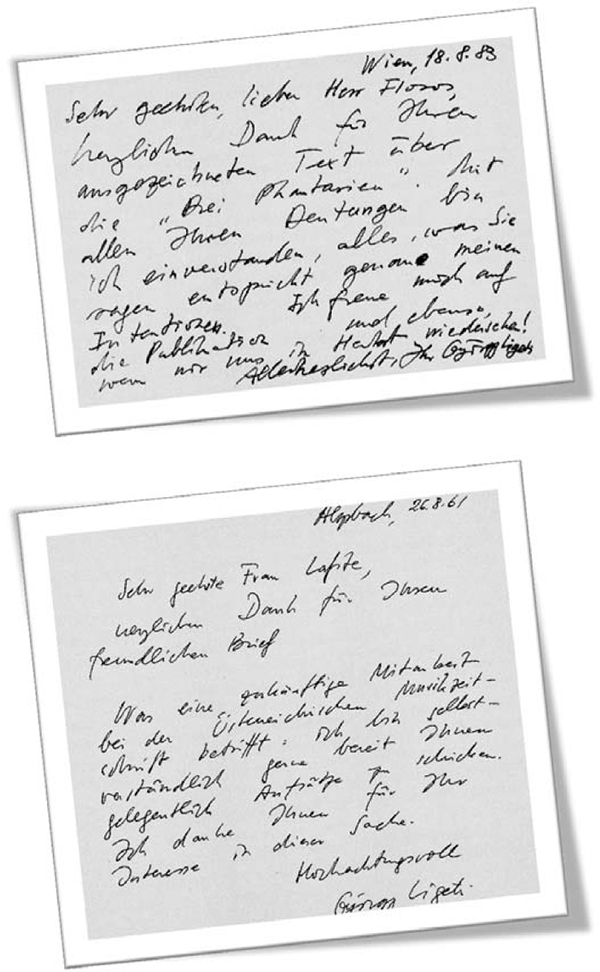 Wien, 18.8.83
Sehr geehrter, lieber Herr Floros,
herzlichen Dank für Ihren
ausgezeichneten Text über
die „Drei Phantasien“. Mit
allen Ihren Deutungen bin
ich einverstanden, alles, was Sie
sagen entspricht genau meinen
Intentionen. Ich freue mich auf
die Publikation und ebenso,
wenn wir uns in Herbst wiedersehen!
Allerherzlichst, Ihr György Ligeti
Alpbach, 26.8.61
Sehr geehrte Frau Lafite,
herzlichen Dank für Ihren
freundlichen Brief
Was eine zukünftige Mitarbeit
bei der Österreichischen Musikzeit-
schrift betrifft: ich bin selbst-
verständlich gerne bereit Ihnen
gelegentlich Aufsätze zu schicken.
Ich danke Ihnen für Ihr
Interesse in dieser Sache.
Hochachtungsvoll
György Ligeti.